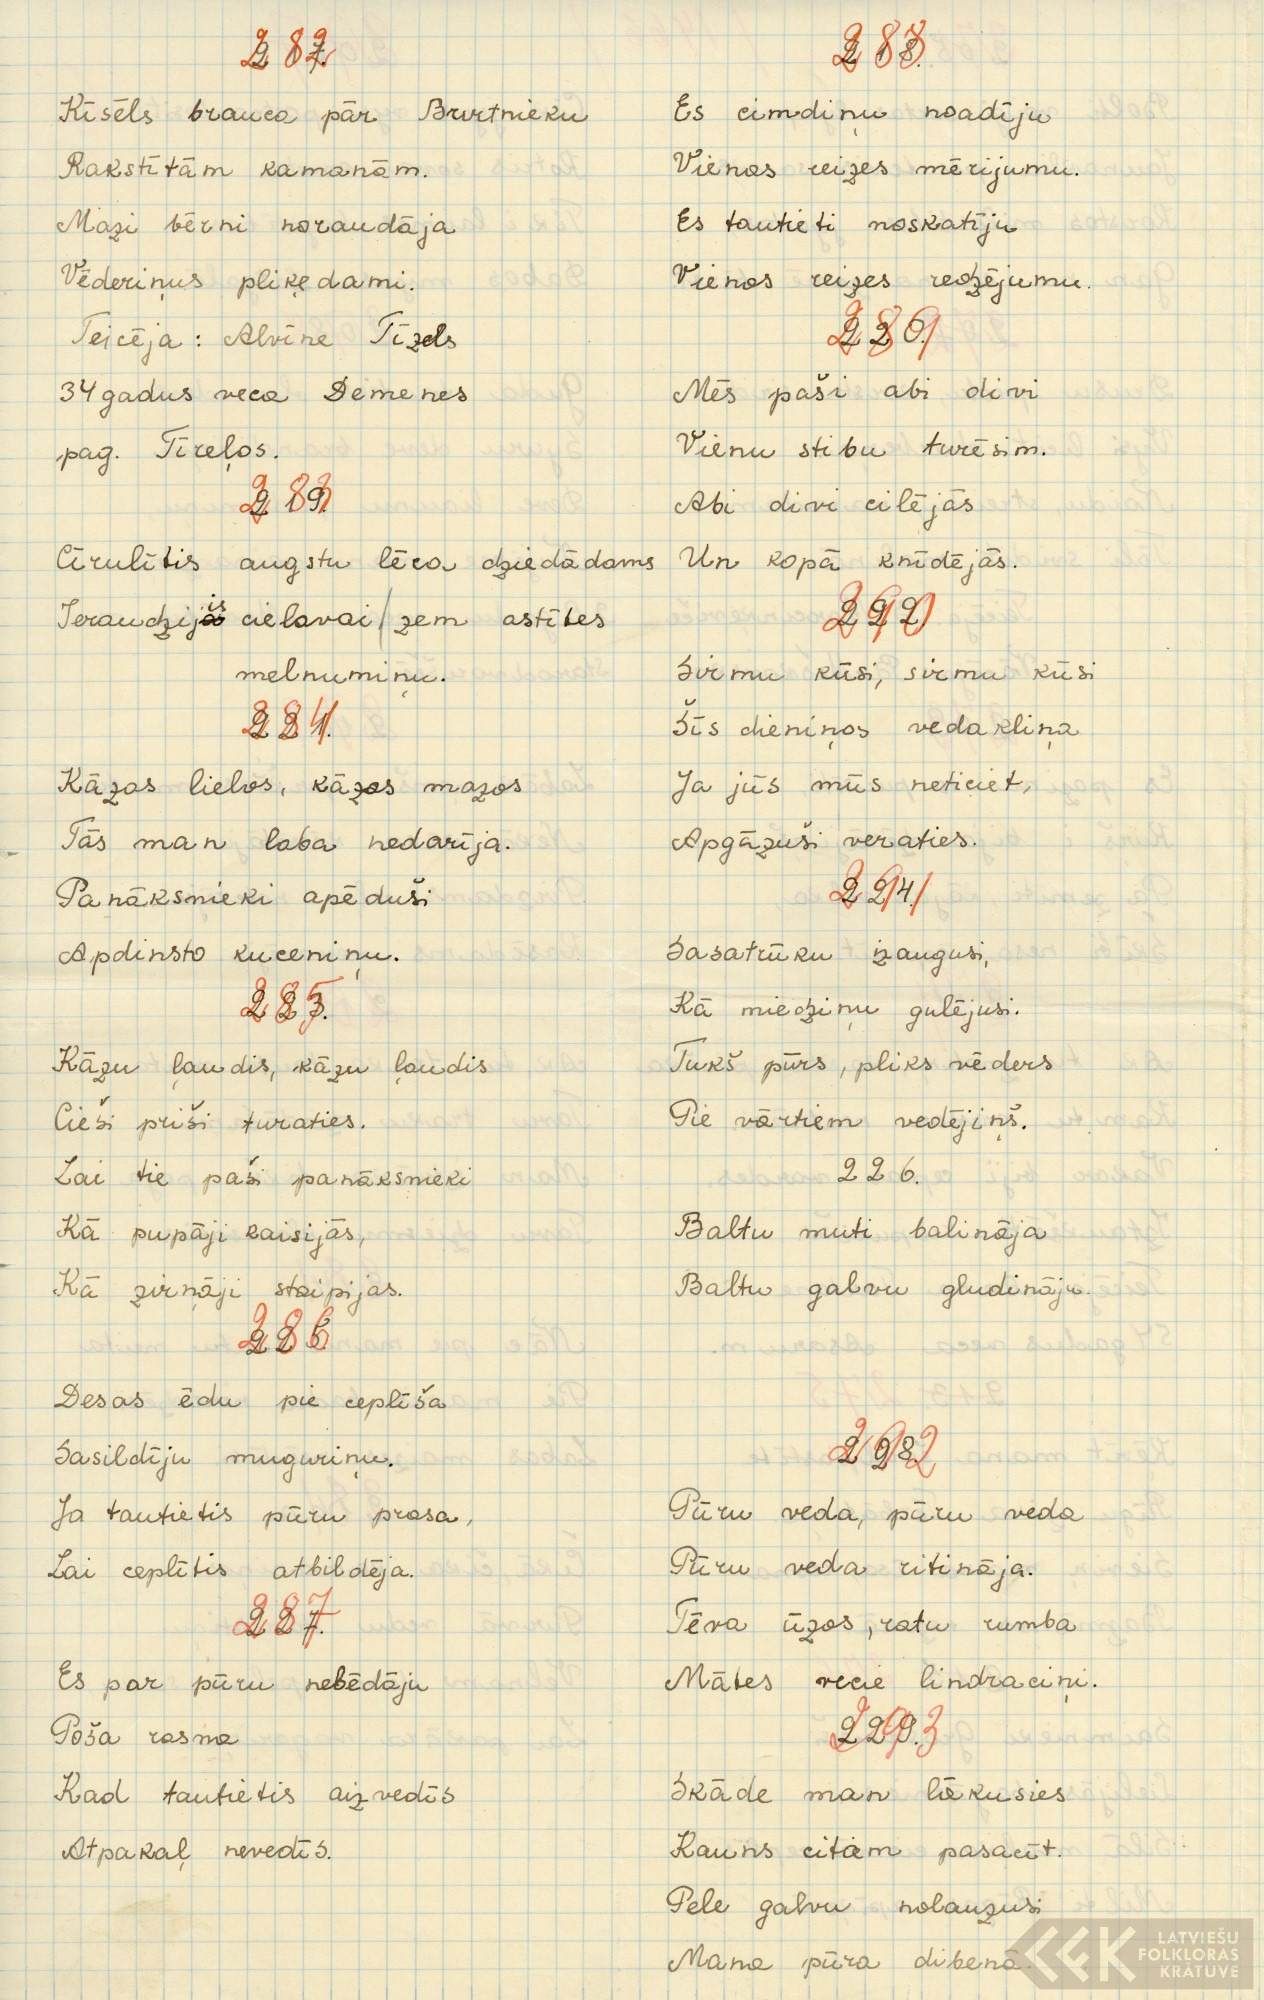 282
Kīsēls brauca pār Burtnieku
Rakstītām kamanām.
Mazi bērni noraudāja
Vēderiņus pliķēdami.
Teicēja: Alvīne Tīzels
34 gadus veca Demenes
pag. Tīreļos.
283
Cīrulītis augstu lēca dziedādams
Ieraudzijis cielavai/zem astītes
melnumiņu.
284
Kāzas lielas, kāzas mazas
Tās man laba nedarīja.
Panāksnieki apēduši
Apdinsto kuceniņu.
285
Kāzu ļaudis, kāzu ļaudis
Cieši priši turaties.
Lai tie paši panāksnieki
Kā pupāji kaisijās,
Kā zirnāji staipijas.
286
Desas ēdu pie ceplīša
Sasildīju muguriņu.
Ja tautietis pūru prasa,
Lai ceplītis atbildēja.
287
Es par pūru nebēdāju
Poša rasma
Kad tautietis aizvedīs
Atpakaļ nevedīs.
288
Es cimdiņu noadīju
Vienas reizes mērijumu.
Es tautieti noskatīju
Vienas reizes redzējumu.
289
Mēs paši abi divi
Vienu stibu turēsim.
Abi divi cilējās
Un kopā knīdējās.
290
Sirmu kūsi, sirmu kūsi
Šīs dieniņas vedakliņa
Ja jūs mūs neticiet,
Apgāzuši veraties.
291
Sasatrūku izaugusi,
Kā miedziņu gulējusi.
Tukš pūrs, pliks vēders
Pie vārtiem vedējiņš.
226.
Baltu muti balināja
Baltu galvu gludināju.
292
Pūru veda, pūru veda
Pūru veda ritināja.
Tēva ūzas, ratu rumba
Mātes vecie lindraciņi.
293
Skāde man liekusies
Kauns citam pasacīt.
Pele galvu nolauzusi
Mana pūra dibenā.
LATVIEŠU
FOLKLORAS
KRĀTUVE